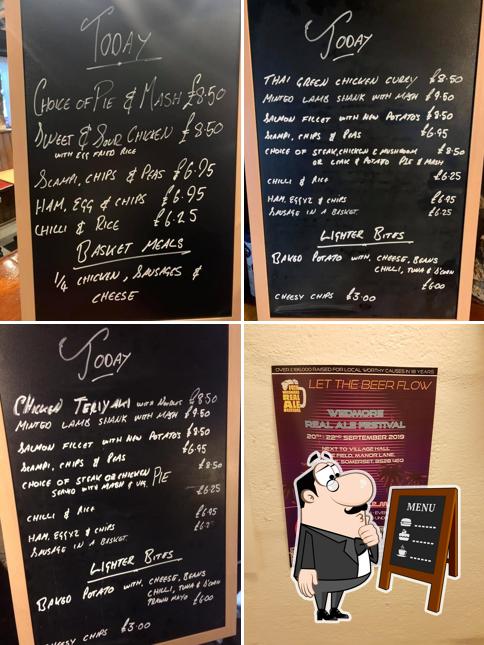 TODAY
CHOICE OF PIE & MASH £8.50
SWEET & SOUR CHICKEN £8.50
WITH EGG FRIED RICE
SCAMPI, CHIPS & PEAS £6.95
HAM, EGG & CHIPS £6.95
CHILLI & RICE £6.25
BASKET MEALS
1/4 CHICKEN, SAUSAGES &
CHEESE
TODAY
THAI GREEN CHICKEN CURRY £8.50
MINTED LAMB SHANK WITH MASH £9.50
SALMON FILLET WITH NEW POTATO'S £8.50
SCAMPI, CHIPS & PEAS £6.95
CHOICE OF STEAK, CHICKEN & MUSHROOM £8.50
OR & POTATO PIE & MASH
CHILLI & RICE £6.25
HAM, EGGX2 & CHIPS £6.95
SAUSAGE IN A BASKET. £6.25
LIGHTER BITES
BAKED POTATO WITH, CHEESE, BEANS
CHILLI, TUNA & S'CORN
£6.00
CHEESY CHIPS £3.00
TODAY
CHICKEN TERIYAKI WITH NOODLES £8.50
MINTED LAMB SHANK WITH MASH £9.50
SALMON FILLET WITH NEW POTATO'S £8.50
SCAMPI, CHIPS & PEAS £6.95
CHOICE OF STEAK OR CHICKEN PIE £8.50
SERVED WITH MASH & VEG
CHILLI & RICE £6.25
HAM, EGGX2 & CHIPS £6.95
SAUSAGE IN A BASKET.
LIGHTER BITES
BAKED POTATO WITH, CHEESE, BEANS
CHILLI, TUNA & S'CORN
PRAWN MAYO £6.00
CHEESY CHIPS £3.00
OVER £186,000 RAISED FOR LOCAL WORTHY CAUSES IN 18 YEARS
LET THE BEER FLOW
WEDMORE
REAL ALE FESTIVAL
20TH - 22ND SEPTEMBER 2019
NEXT TO VILLAGE HALL,
FIELD, MANOR LANE,
SOMERSET, BS28 4EQ
MENU